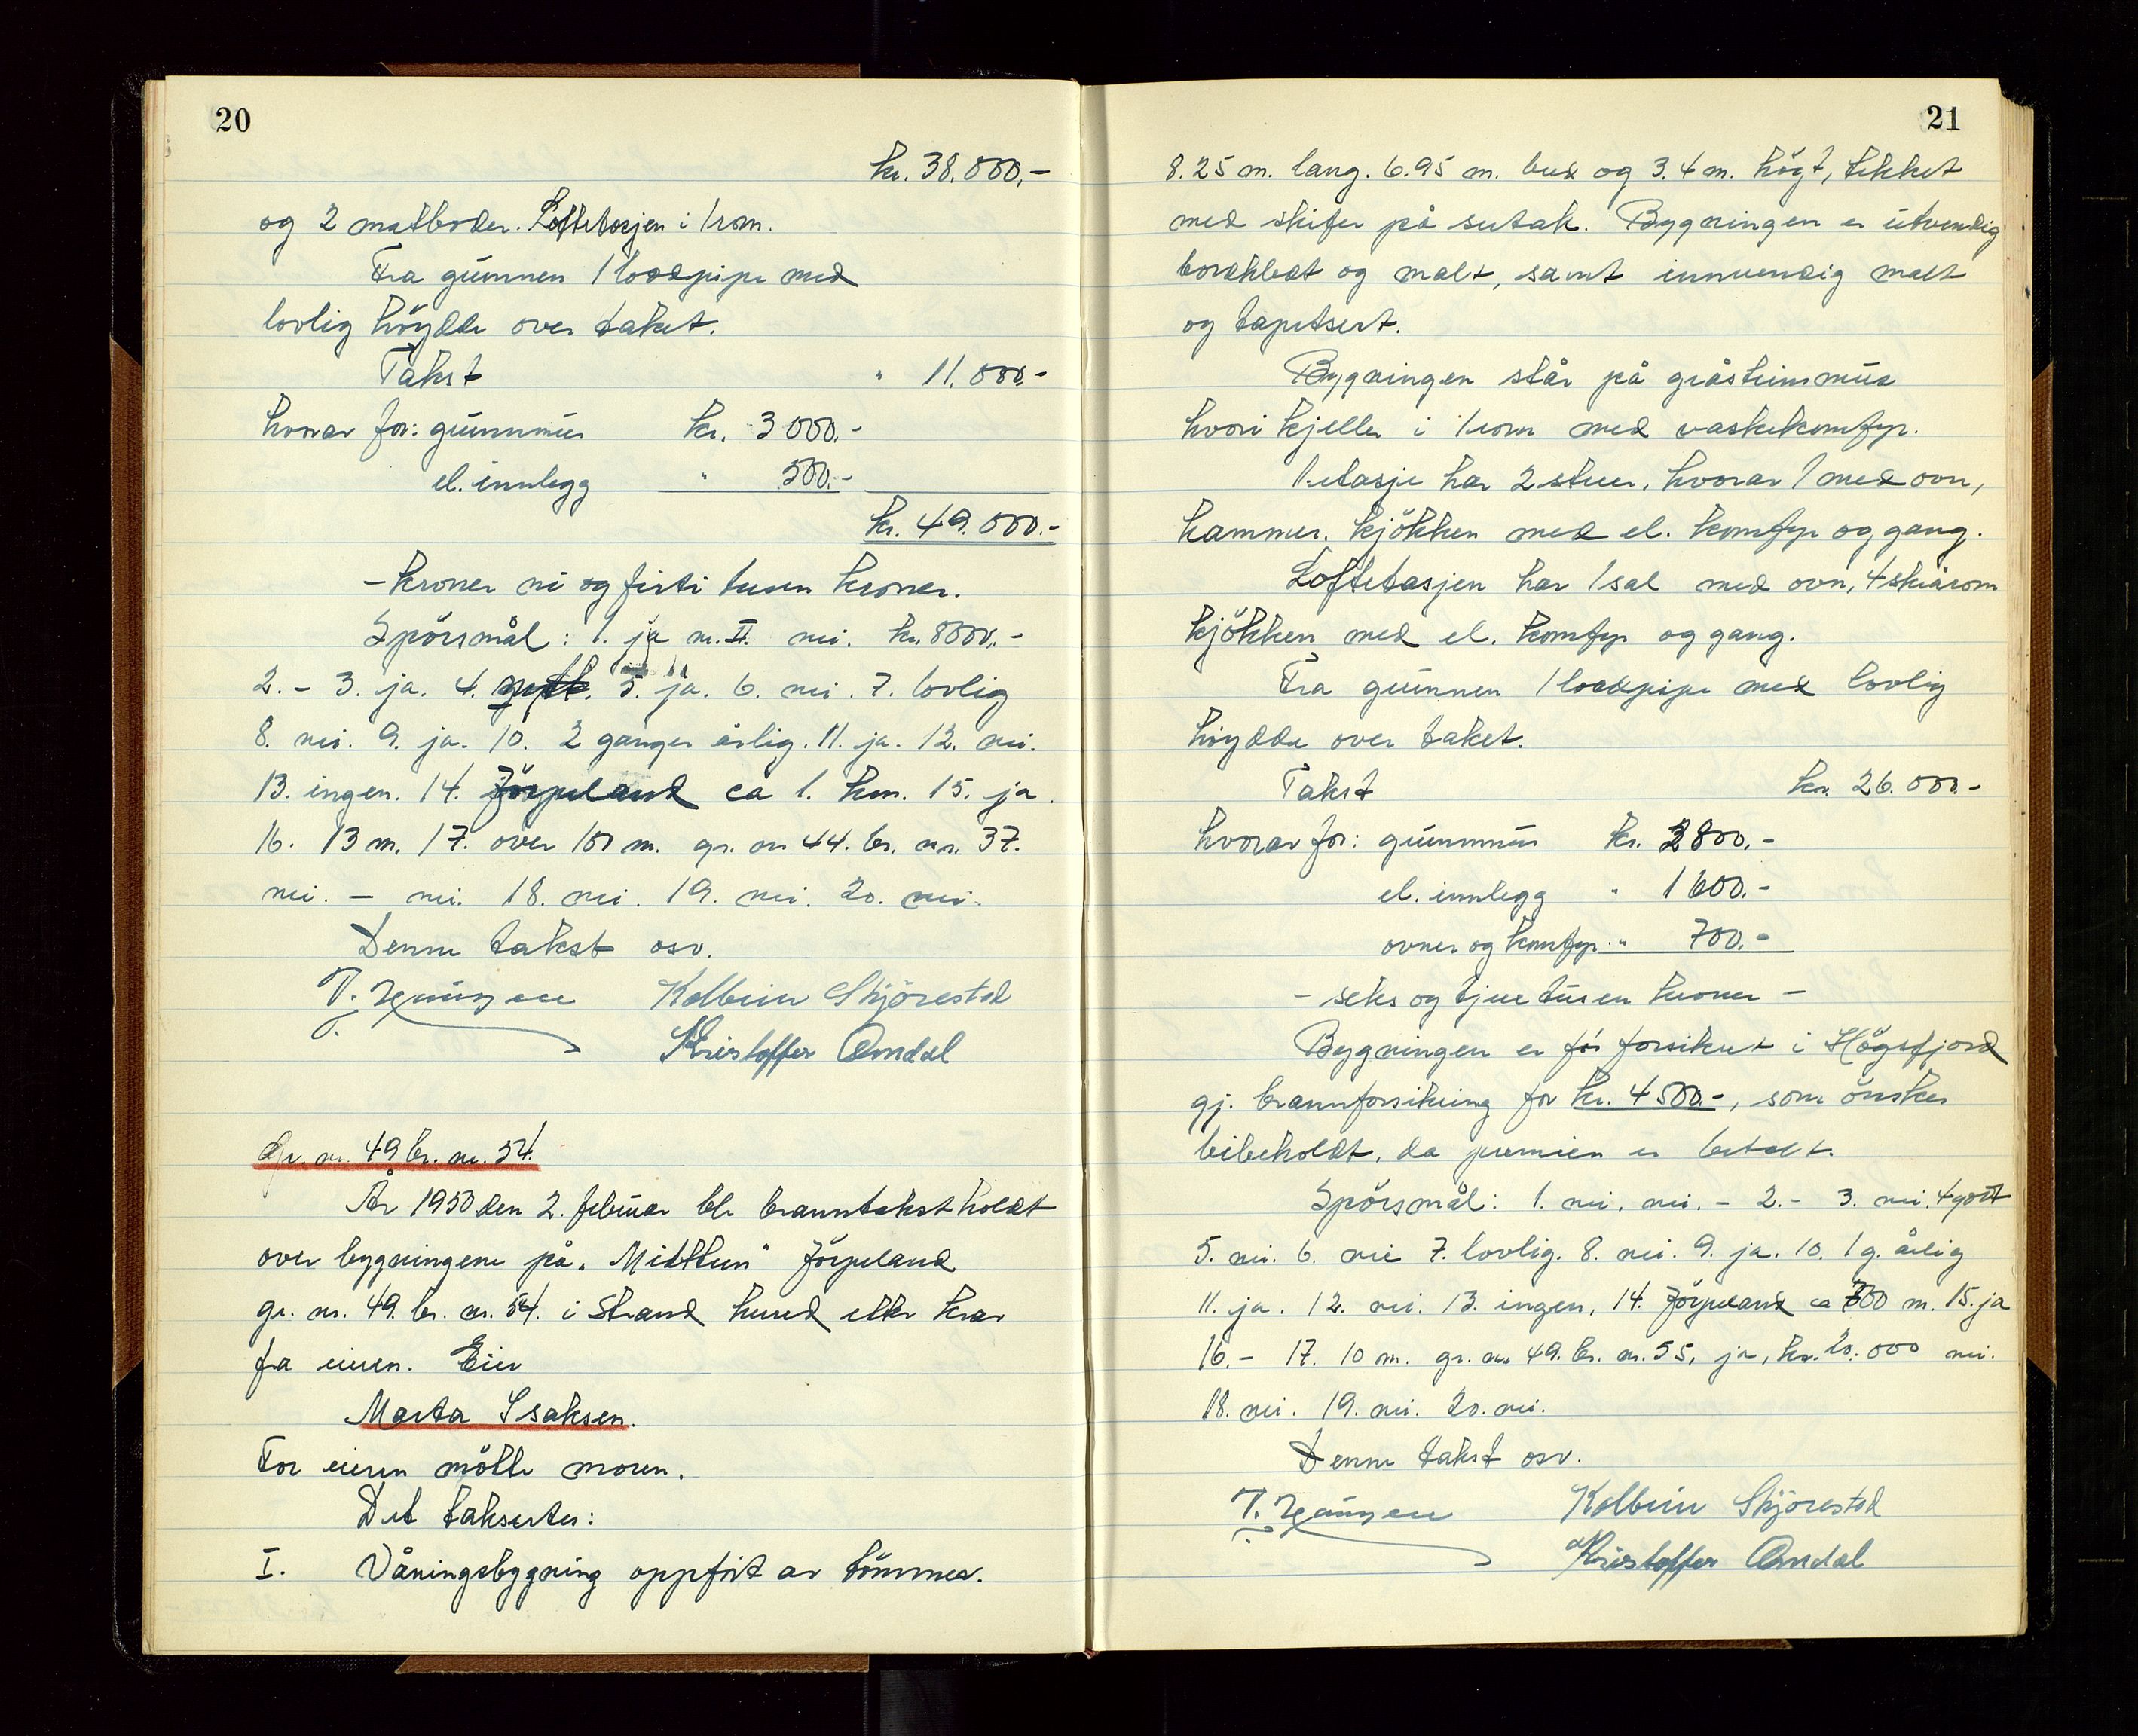 20
kr. 38.000,-
og 2 matboder. Loftetasjen i 1 rom.
Fra grunnen 1 loddpipe med
lovlig höydde over taket.
Takst " 11.000.-
hvorav for: grunnmur kr. 3000.-
el. innlegg " 500.-
kr. 49.000.-
- kroner ni og firti tusen kroner.
Spörsmål: 1. ja nr. II. nei. kr. 8000.-
2. - 3. ja. 4. 5. ja. 6. nei. 7. lovlig
8. nei. 9. ja. 10. 2 ganger årlig. 11. ja. 12. nei.
13. ingen. 14. Jörpeland ca 1. km. 15. ja.
16. 13 m. 17. over 100 m. gr. nr 44. br. nr. 37.
nei. - nei. 18. nei. 19. nei. 20. nei.
Denne takst osv.
Kolbein Skjörestad
Kristoffer Omdal
Gr. nr. 49 br. nr. 54.
År 1950 den 2. februar ble branntakst holdt
over bygningene på "Midttun" Jörpeland
gr. nr. 49. br. nr. 54. i Strand herred etter krav
fra eieren. Eier
Marta Isaksen.
For eieren mötte moren.
Det takserter:
I. Våningsbygning oppfört av tömmer.
21
8.25 m. lang. 6.95 m. bred og 3.4 m. högt, tekket
med skifer på sutak. Bygningen er utvendig
bordkledt og malt, samt innvendig malt
og tapetsert.
Bygningen står på gråsteinsmur
hvori kjeller i 1 rom med vaskekomfyr.
1. etasje har 2 stuer, hvorav 1 med ovn,
kammer. kjökken med el. komfyr og gang.
Loftetasjen har 1 sal med ovn, 4 skrårom
kjökken med el. komfyr og gang.
Fra grunnen 1 loddpipe med lovlig
höydde over taket.
Takst kr. 26.000.-
hvorav for: grunnmur kr. 2800.-
el. innlegg " 1600.-
ovner og komfyr " 700.-
- seks og tjue tusen kroner -
Bygningen er för forsikret i Högsfjord
gj. brannforsikring for kr. 4500.-, som önskes
bibeholdt, da premien er betalt.
Spörsmål: 1. nei, nei. - 2. - 3. nei. 4 godt
5. nei. 6. nei 7. lovlig. 8. nei. 9. ja. 10. 1 g. årlig
11. ja. 12. nei. 13. ingen, 14. Jörpeland ca 700 m. 15. ja
16. - 17. 10 m. gr. nr. 49. br. nr. 55, ja, kr. 20.000 nei.
18. nei. 19. nei. 20. nei.
Denne takst osv.
Kolbein Skjörestad
Kristoffer Omdal